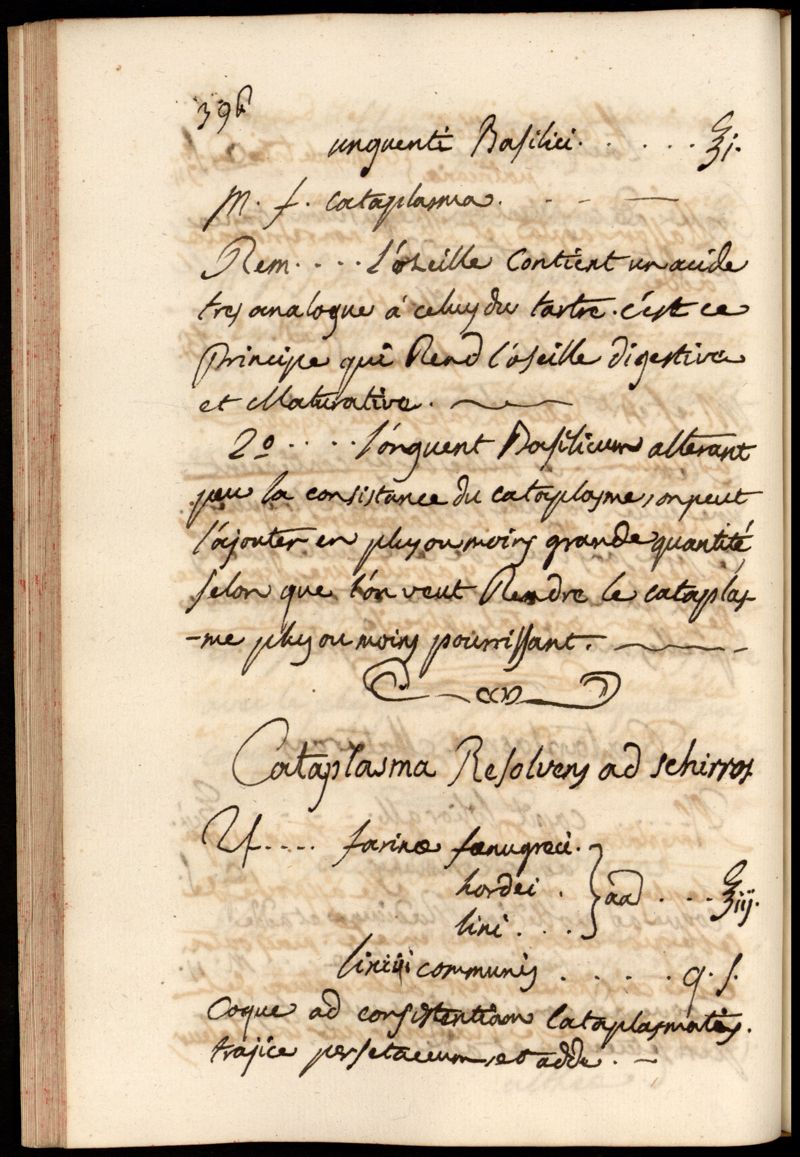 396
unguenti Basilici. . . . . . ℥j.
M. f. cataplasma. - - —
Rem. . . . l'oseille contient un acide
tres analogue á celuy du tartre. c'est ce
Principe qui Rend l'óseille digestive
et Maturative. —
2º . . . . l'ónguent Basilicum alterant
peu la consistance du cataplasme, on peut
l'ajouter en plus ou moins grande quantité,
selon que l'ón veut Rendre le cataplas-
-me plus ou moins pourrissant. —
Cataplasma Resolvens ad schirros
♃. . . . farinæ fænugreci.
hordei .
lini . . . } aa . . . ℥iij.
communis . . . . . q. s.
Coque ad consistentiam Cataplasmatis.
trajice per setaceum, et adde. —